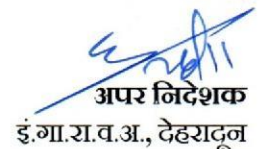 अपर निदेशक
इं.गा.रा.व.अ., देहरादून